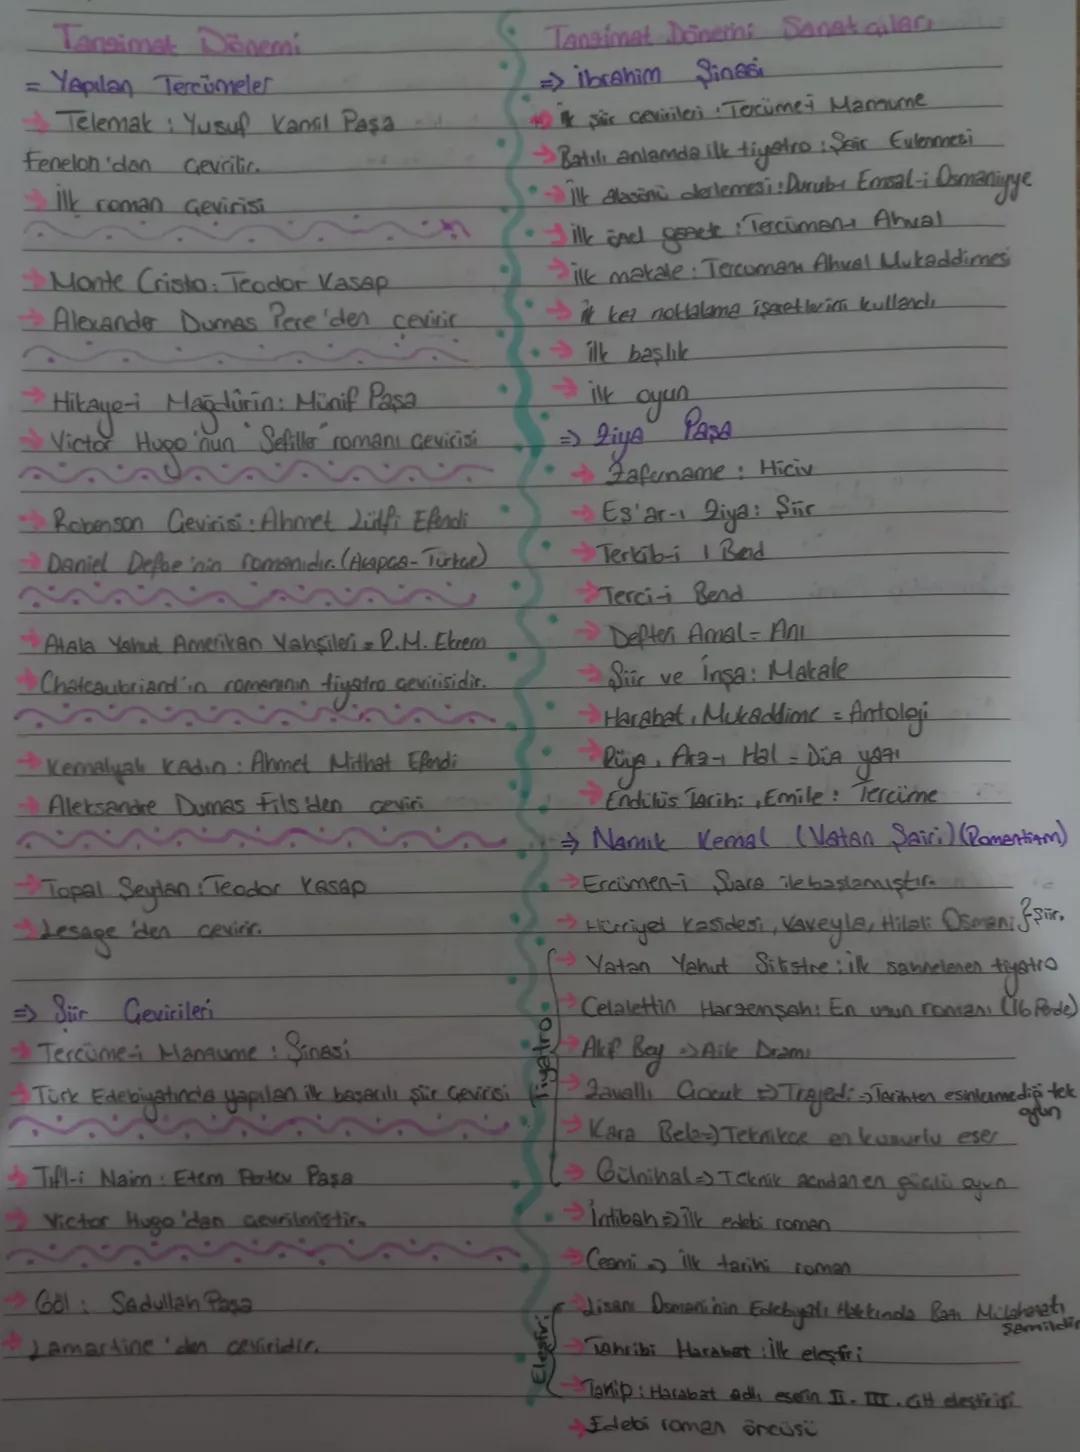 Tanzimat Dönemi
= Yapılan Tercümeler
→ Telemak : Yusuf Kamil Paşa
Fenelon'dan çevirilir.
→ İlk roman çevirisi
→ Monte Cristo: Teodor Kasap
→ Alexander Dumas Pere'den çevirir
→ Hikaye-i Mağdûrin: Münif Paşa
→ Victor Hugo'nun "Sefiller" romanı çevirisi
→ Robenson Çevirisi: Ahmet Lütfi Efendi
→ Daniel Defoe'nin romanıdır. (Arapça-Türkçe)
→ Atala Yahut Amerikan Vahşileri = R.M. Ekrem
→ Chateaubriand'ın romanının tiyatro çevirisidir.
→ Kamelyalı Kadın : Ahmet Mithat Efendi
→ Aleksandre Dumas Fils'den çeviri
→ Topal Şeytan: Teodor Kasap
→ Lesage'den çevirir.
⇒ Şiir Çevirileri
→ Tercüme-i Manzume : Şinasi
→ Türk Edebiyatında yapılan ilk başarılı şiir çevirisi
→ Tıfl-i Naim : Etem Pertev Paşa
→ Victor Hugo'dan çevrilmiştir.
→ Göl : Sadullah Paşa
→ Lamartine'den çeviridir.
Tanzimat Dönemi Sanatçıları
⇒ İbrahim Şinasi
→ İlk şiir çevirileri : Tercüme-i Manzume
→ Batılı anlamda ilk tiyatro : Şair Evlenmesi
→ İlk atasözü derlemesi : Durub-ı Emsal-i Osmaniyye
→ ilk özel gazete : Tercüman-ı Ahval
→ ilk makale : Tercuman Ahval Mukaddimesi
→ ilk kez noktalama işaretlerini kullandı
→ ilk başlık
→ ilk oyun
⇒ Ziya Paşa
→ Zafername : Hiciv
→ Eş'ar-ı Ziya : Şiir
→ Terkib-i Bend
→ Terci-i Bend
→ Defteri Amal = Anı
→ Şiir ve İnşa : Makale
→ Harabat, Mukaddime = Antoloji
→ Rüya, Arz-ı Hal = Düz yazı
→ Endülüs Tarihi, Emile : Tercüme
⇒ Namık Kemal (Vatan Şairi) (Romantizm)
→ Encümen-i Şuara ile başlamıştır.
→ Hürriyet Kasidesi, Vaveyla, Hilali Osmani } Şiir.
Tiyatro
→ Vatan Yahut Silistre : ilk sahnelenen tiyatro
→ Celalettin Harzemşah : En uzun romanı (16 Perde)
→ Akif Bey → Aile Dramı
→ Zavallı Çocuk ⇒ Trajedi → Tarihten esinlenmediği tek oyun
→ Kara Bela ⇒ Teknikçe en kusurlu eser
→ Gülnihal ⇒ Teknik açıdan en güçlü oyun
→ İntibah ⇒ ilk edebi roman
→ Cezmi ⇒ ilk tarihi roman
Eleştiri:
→ Lisanı Osmani'nin Edebiyatı Hakkında Bazı Mülahazatı Şamildir
→ Tahribi Harabat : İlk eleştiri
→ Takip : Harabat adlı eserin II. III. cilt eleştirisi
→ Edebi roman öncüsü